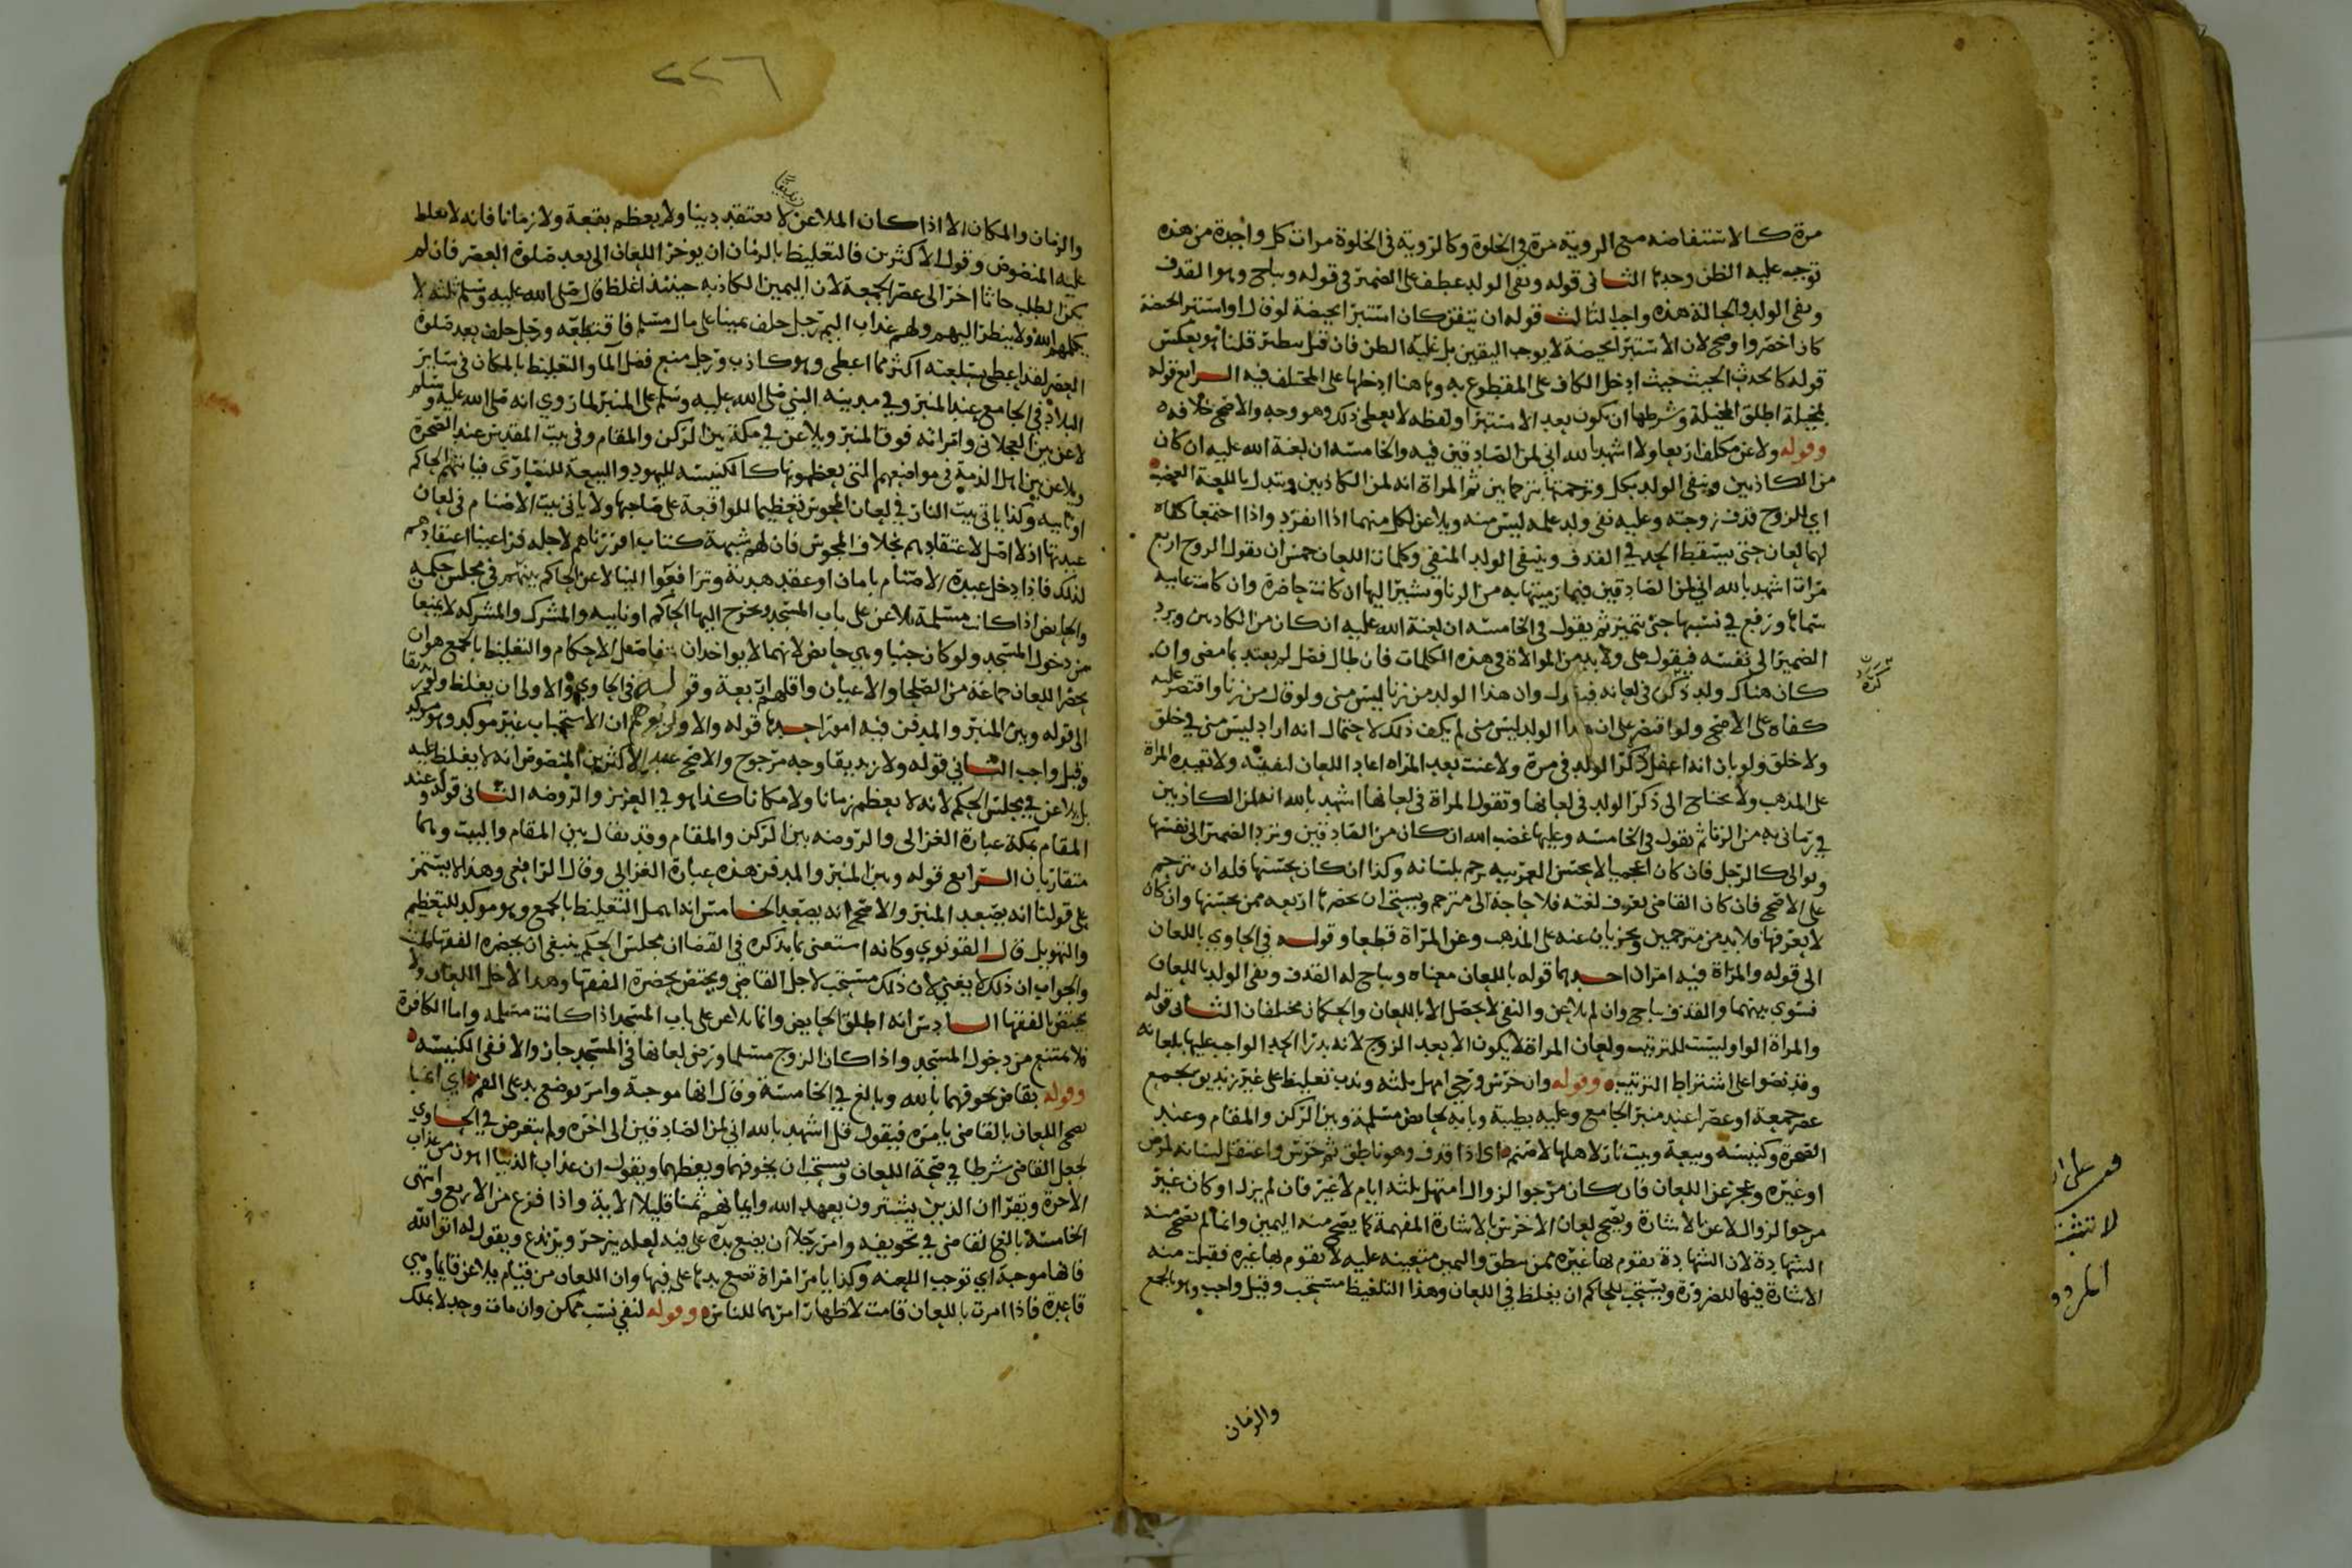 مرة كالاستفاضه مع الروية مرة في الخلوة وكالروية في الخلوة مرات كل واحدة من هذه
توجب عليه الظن وحدها الثاني قوله ونفى الولد عطف على الضمير في قوله ويباح وهو القذف
ونفى الولد والحالة هذه واجب الثالث قوله ان تيقن كان استبرا بحيضة لو قال او استبر الحيضة
كان اخصر واوضح لان الاستبرا بحيضة لا يوجب اليقين بل غلبة الظن فان قيل قلنا هو بعكس
قوله كالحدث الخبث حيث ادخل الكاف على المقطوع به وهاهنا ادخلها على المختلف فيه الرابع قوله
لمخيلة اطلق المخيلة وشرطها ان يكون بعد الاستبرا ولفظه لا يعطى ذلك وهو وجه والاصح خلافه
وقوله ولاعن مكلف اربعا ولا اشهد بالله اني لمن الصادقين فيه والخامسه ان لعنة الله عليه ان كان
من الكاذبين وينفى الولد بكل وترجمتها بترجمانين ثم المراة انه لمن الكاذبين وتبدل باللعنة الغضب
اي للزوج قذف زوجته وعليه نفى ولد علمه ليس منه ويلاعن لكل منهما اذا انفرد واذا اجتمعا كفاه
لهما لعان حتى يسقط الحد في القذف وينفى الولد المنفى وكلمات اللعان خمس ان يقول الزوج اربع
مرات اشهد بالله اني لمن الصادقين فيما رميتها به من الزنا ويشير اليها ان كانت حاضرة وان كانت غايبه
سماها ورفع في نسبها حتى تتميز ثم يقول في الخامسه ان لعنة الله عليه ان كان من الكاذبين ويرد
الضمير الى نفسه فيقول على ولا بد من الموالاة في هذه الكلمات فان طال فصل لم يعتد بما مضى وان
كان هناك ولد ذكره في لعانه فيقول وان هذا الولد من زنا ليس منى ولو قال من زنا واقتصر عليه
كفاه على الاصح ولو اقتصر على ان هذا الولد ليس منى لم يكف ذلك لاحتمال انه اراد ليس منى في خلق
ولا خلق ولو بان انه اغفل ذكر الولد في مرة ولاعنت بعد المراه اعاد اللعان لنفيه ولا تعيده المراة
على المذهب ولا يحتاج الى ذكر الولد في لعانها وتقول المراة في لعانها اشهد بالله انه لمن الكاذبين
في رماني به من الزنا ثم تقول في الخامسه وعليها غضب الله ان كان من الصادقين وترد الضمير الى نفسها
وتوالى كالرجل فان كان اعجميا لا يحسن العربيه ترجم بلسانه وكذا ان كان يحسنها فله ان يترجم
على الاصح فان كان القاضى يعرف لغته فلا حاجة الى مترجم ويستحب ان يحضرها اربعه ممن يحسنها وان كان
لا يعرفها فلا بد من مترجمين ويجزيان عنه على المذهب وعن المراة قطعا وقوله في الحاوي باللعان
الى قوله والمراة فيه امران احدهما قوله باللعان معناه ويباح له القذف ونفى الولد باللعان
فسوى بينهما والقذف يباح وان لم يلاعن والنفى لا يحصل الا باللعان والحكمان مختلفان الثاني قوله
والمراة الواو ليست للترتيب ولعان المراة لا يكون الا بعد الزوج لانه يدرا الحد الواجب عليها بلعانه
وقد نصوا على اشتراط الترتيب وقوله وان خرس ورجي امهل بثلثه وندب تغليظ على غير زنديق بجمع
عصر جمعة او عصرا عند منبر الجامع وعليه بطيبة وبابه لحايض مسلمة وبين الركن والمقام وعند
الصخرة وكنيسه وبيعة وبيت نار لاهلها لا صنم اى اذا قذف وهو ناطق ثم خرس واعتقل لسانه لمرض
او غيره وعجز عن اللعان فان كان مرجوا لزوال امتهل بثلثه ايام لا غير فان لم يزل او كان غير
مرجوا لزوال لاعن بالاشارة ويصح لعان الاخرس بالاشارة المفهمة كما يصح منه اليمين وانما لم تصح منه
الشهادة لان الشهادة يقوم بها غيره ممن ينطق واليمين متعينه عليه لا يقوم بها غيره فقبلت منه
الاشارة فيها للضرورة ويستحب للحاكم ان يغلظ في اللعان وهذا التغليظ مستحب وقيل واجب وهو بالجمع
والزمان
٢٢٦
والزمان والمكان الا اذا كان الملاعن لا يعتقد دينا ولا يعظم بقعة ولا زمانا فانه لا يغلظ
عليه المنصوص وقول الاكثرين فالتغليظ بالزمان ان يوخر اللعان الى بعد صلوة العصر فان لم
يكن الطلب حاثا اخر الى عصر الجمعة لان اليمين الكاذبه حينئذ اغلظ قال صلى الله عليه وسلم ثلثه لا
يكلمهم الله ولا ينظر اليهم ولهم عذاب اليم رجل حلف يمينا على مال مسلم فاقتطعه ورجل حلف بعد صلوة
العصر لقد اعطى بسلعته اكثر مما اعطى وهو كاذب ورجل منع فضل الما والتغليظ بالمكان في ساير
البلاد في الجامع عند المنبر وفي مدينة النبي صلى الله عليه وسلم على المنبر لما روي انه صلى الله عليه وسلم
لاعن بين العجلاني وامراته فوق المنبر ويلاعن في مكة بين الركن والمقام وفي بيت المقدس عند الصخرة
ويلاعن بين اهل الذمة في مواضعهم التي يعظمونها كالكنيسه لليهود والبيعة للنصارى فياتيهم الحاكم
او نايبه وكذا ياتى بيت النار في لعان المجوس تعظيما للواقعة على صاحبها ولا ياتى بيت الاصنام في لعان
عبدتها اذ لا اصل لاعتقادهم بخلاف المجوس فان لهم شبهة كتاب اقررناهم لاجله فراعينا اعتقادهم
لذلك فاذا دخل عبدة الاصنام بامان او عقد هدنة وترافعوا الينا لاعن الحاكم بينهم في مجلس حكمه
والحايض اذا كانت مسلمة تلاعن على باب المسجد ويخرج اليها الحاكم او نايبه والمشرك والمشركه لا يمنعا
من دخول المسجد ولو كان جنبا وهي حايض لانهما لا يواخذان بتفاصيل الاحكام والتغليظ بالجمع هو ان
يحضر اللعان جماعة من الصلحا والاعيان واقلهم اربعة وقوله في الحاوي والاولى ان يغلظ ولو زنديقا
الى قوله وبين المنبر والمدفن فيه امور احدها قوله والاولى يوهم ان الاستحباب غير موكد وهو موكد
وقيل واجب الثاني قوله ولا زنديقا وجه مرجوح والاصح عند الاكثرين المنصوص انه لا يغلظ عليه
بل يلاعن في مجلس الحكم لانه لا يعظم زمانا ولا مكانا كذا هو في العزيز والروضه الثالث قوله وعند
المقام بمكة عبارة الغزالى والروضه بين الركن والمقام وقد يقال بين المقام والبيت وهما
متقاربان الرابع قوله وبين المنبر والمدفن هذه عبارة الغزالى وقال الرافعى وهذا لا يستمر
على قولنا انه يصعد المنبر والاصح انه يصعد الخامس انه اهمل التغليظ بالجمع وهو موكد للتعظيم
والتهويل قال القونوي وكانه استغنى بما يذكره في القضا ان مجلس الحكم ينبغي ان يحضره الفقها
والجواب ان ذلك لا يغني لان ذلك مستحب لاجل القاضي ويختص بحضرة الفقها وهذا لاجل اللعان ولا
يختص بالفقها السادس انه اطلق الحايض وانما يلاعن على باب المسجد اذا كانت مسلمه واما الكافرة
فلا تمتنع من دخول المسجد واذا كان الزوج مسلما ورضى لعانها في المسجد جاز والا ففى الكنيسه
وقوله بقاض يخوفهما بالله وبالغ في الخامسة وقال انها موجبة وامر بوضع يد على الفم اي انما
يصح اللعان بالقاضى يامره فيقول قل اشهد بالله اني لمن الصادقين الى اخره ولم يتعرض في الحاوي
لجعل القاضى شرطا في صحة اللعان ويستحب ان يخوفهما ويعظهما ويقول ان عذاب الدنيا اهون من عذاب
الاخرة ويقرا ان الذين يشترون بعهد الله وايمانهم ثمنا قليلا الاية واذا فرغ من الاربع وانتهى
الخامسة بالغ القاضى في تخويفه وامر رجلا ان يضع يده على فيه لعله ينزجر ويرتدع ويقول له اتق الله
فانها موجبة اي توجب اللعنه وكذا يامر امراة تضع يدها على فيها وان اللعان من قيام يلاعن قايما وهي
قاعدة فاذا امرت باللعان قامت لاظهار امرهما للناس وقوله لنفى نسب ممكن وان مات وحد لا بملك